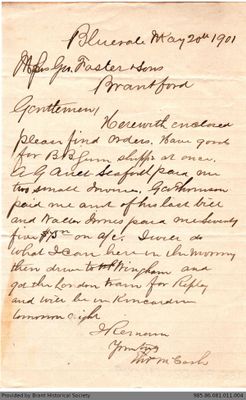 Bluevale May 20th 1901
Messrs Geo. Foster & Sons
Brantford
Gentlemen,
Herewith enclosed
please find orders. Have goods
for B & Gunn shipped at once.
A G Ault Seaforth paid me
two small Invoices,
paid me amt of his last bill
and Walter Innes paid me Seventy
five $75.00 on a/c. I will do
what I can here in the morning
then drive to Wingham and
get the London train for Ripley
and will be in Kincardine
tomorrow night
I Remain
Yours truly
Provided by Brant Historical Society
985.86.081.011.004